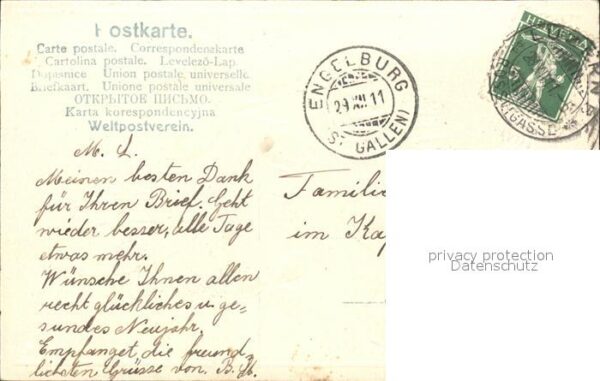 Postkarte.
Carte postale. Correspondenzkarte
Cartolina postale. Levelező-Lap.
Dopisnice Union postale universelle
Briefkaart. Unione postale universale
ОТКРЫТОЕ ПИСЬМО.
Karta korespondencyjna
Weltpostverein.
HELVETIA
ENGELBURG
29.XII.11
(ST GALLEN)
GASSE
M. L.
Meinen besten Dank
für Ihren Brief. Geht
wieder besser, alle Tage
etwas mehr.
Wünsche Ihnen allen
recht glückliches u. ge-
sundes Neujahr.
Empfanget die freund-
lichsten Grüsse von B.
Familie
im Kap
privacy protection
Datenschutz